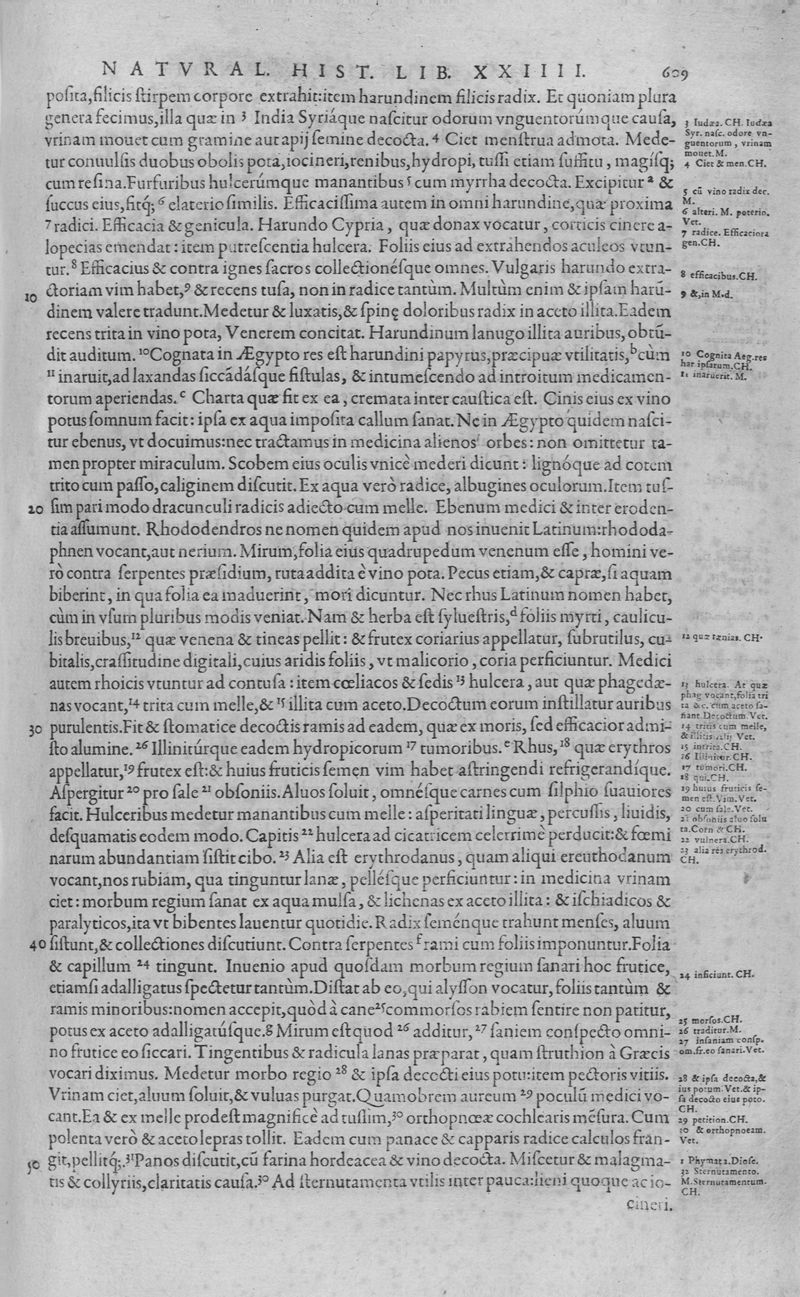 NATVRAL. HIST. LIB. XXIIII. 609
posita,filicis stirpem corpore extrahit:item harundinem filicis radix. Et quoniam plura
genera fecimus,illa quæ in ³ India Syriáque nascitur odorum vnguentorúmque causa,
vrinam mouet cum gramine aut apij semine decocta.⁴ Ciet menstrua admota. Mede-
tur conuulsis duobus obolis pota,iocineri,renibus,hydropi, tussi etiam suffitu , magisq;
cum resina.Furfuribus hulcerúmque manantibus ⁵ cum myrrha decocta. Excipitur ᵃ &
succus eius,fitq; ⁶ elaterio similis. Efficacissima autem in omni harundine,quæ proxima
⁷ radici. Efficacia & genicula. Harundo Cypria , quæ donax vocatur , corticis cinere a-
lopecias emendat : item putrescentia hulcera. Foliis eius ad extrahendos aculeos vtun-
tur.⁸ Efficacius & contra ignes sacros collectionésque omnes. Vulgaris harundo extra-
10 ctoriam vim habet,⁹ & recens tusa, non in radice tantùm. Multùm enim & ipsam harū-
dinem valere tradunt.Medetur & luxatis,& spinę doloribus radix in aceto illita.Eadem
recens trita in vino pota, Venerem concitat. Harundinum lanugo illita auribus,obtū-
dit auditum. ¹⁰Cognata in Ægypto res est harundini papyrus,præcipuæ vtilitatis,ᵇcùm
¹¹ inaruit,ad laxandas siccádásque fistulas, & intumescendo ad introitum medicamen-
torum aperiendas.ᶜ Charta quæ fit ex ea , cremata inter caustica est. Cinis eius ex vino
potus somnum facit: ipsa ex aqua imposita callum sanat. Ne in Ægypto quidem nasci-
tur ebenus, vt docuimus:nec tractamus in medicina alienos orbes: non omittetur ta-
men propter miraculum. Scobem eius oculis vnicè mederi dicunt : lignóque ad cotem
trito cum passo,caliginem discutit. Ex aqua verò radice, albugines oculorum.Item tus-
20 sim pari modo dracunculi radicis adiecto cum melle. Ebenum medici & inter eroden-
tia assumunt. Rhododendros ne nomen quidem apud nos inuenit Latinum:rhododa-
phnen vocant,aut nerium. Mirum,folia eius quadrupedum venenum esse , homini ve-
rò contra serpentes præsidium, ruta addita è vino pota. Pecus etiam,& capræ,si aquam
biberint, in qua folia ea maduerint, mori dicuntur. Nec rhus Latinum nomen habet,
cùm in vsum pluribus modis veniat. Nam & herba est syluestris,ᵈ foliis myrti, caulicu-
lis breuibus,¹² quæ venena & tineas pellit : & frutex coriarius appellatur, subrutilus, cu-
bitalis,crassitudine digitali,cuius aridis foliis , vt malicorio , coria perficiuntur. Medici
autem rhoicis vtuntur ad contusa : item cœliacos & sedis ¹³ hulcera , aut quæ phagedæ-
nas vocant,¹⁴ trita cum melle,& ¹⁵ illita cum aceto.Decoctum eorum instillatur auribus
30 purulentis.Fit & stomatice decoctis ramis ad eadem, quæ ex moris, sed efficacior admi-
sto alumine. ¹⁶ Illinitúrque eadem hydropicorum ¹⁷ tumoribus.ᵉ Rhus, ¹⁸ quæ erythros
appellatur,¹⁹ frutex est:& huius fruticis semen vim habet astringendi refrigerandíque.
Aspergitur ²⁰ pro sale ²¹ obsoniis.Aluos soluit, omnésque carnes cum silphio suauiores
facit. Hulceribus medetur manantibus cum melle : asperitati linguæ , percussis , liuidis,
desquamatis eodem modo. Capitis ²² hulcera ad cicatricem celerrimè perducit:& fœmi
narum abundantiam sistit cibo. ²³ Alia est erythrodanus , quam aliqui ereuthodanum
vocant,nos rubiam, qua tinguntur lanæ , pellésque perficiuntur : in medicina vrinam
ciet : morbum regium sanat ex aqua mulsa , & lichenas ex aceto illita : & ischiadicos &
paralyticos,ita vt bibentes lauentur quotidie. Radix seménque trahunt menses, aluum
40 sistunt,& collectiones discutiunt. Contra serpentes ᶠrami cum foliis imponuntur.Folia
& capillum ²⁴ tingunt. Inuenio apud quosdam morbum regium sanari hoc frutice,
etiamsi adalligatus spectetur tantùm.Distat ab eo,qui alysson vocatur, foliis tantùm &
ramis minoribus:nomen accepit,quòd à cane²⁵commorsos rabiem sentire non patitur,
potus ex aceto adalligatúsque.ᵍ Mirum est quod ²⁶ additur, ²⁷ saniem conspecto omni-
no frutice eo siccari. Tingentibus & radicula lanas præparat , quam struthion à Græcis
vocari diximus. Medetur morbo regio ²⁸ & ipsa decocti eius potu:item pectoris vitiis.
Vrinam ciet,aluum soluit,& vuluas purgat.Quamobrem aureum ²⁹ poculū medici vo-
cant.Ea & ex melle prodest magnificè ad tussim,³⁰ orthopnœæ cochlearis mēsura. Cum
polenta verò & aceto lepras tollit. Eadem cum panace & capparis radice calculos fran-
50 git,pellitq;.³¹Panos discutit,cū farina hordeacea & vino decocta. Miscetur & malagma-
tis & collyriis,claritatis causa.³⁰ Ad sternutamenta vtilis inter pauca:lieni quoque ac io-
cineri.
3 Iudæa. CH. Iudæa
Syr. nasc. odore vn-
guentorum , vrinam
mouet.M.
4 Ciet & men.CH.
5 cū vino radix dec.
M.
6 alteri. M. poterio.
Vet.
7 radice. Efficaciora
gen.CH.
8 efficacibus.CH.
9 &,in M.d.
10 Cognita Aeg.res
har ipsarum.CH.
11 inaruerit. M.
12 quæ tænias. CH.
13 hulcera. At quæ
phag vocant,folia tri
ta &c. cum aceto sa-
nant.Decoctum.Vet.
14 tritis cum melle,
& illitis Vet.
15 intrita.CH.
16 Illinitur. CH.
17 tumori.CH.
18 qui.CH.
19 huius fruticis se-
men est.Vim.Vet.
20 cum sale.Vet.
21 obsoniis aluo solu
ta.Corn & CH.
22 vulnera.CH.
23 alia res erythrod.
CH.
24 inficiunt. CH.
25 morsos.CH.
26 traditur.M.
27 insaniam consp.
om.fr.eo sanari.Vet.
28 & ipsa decocta,&
ius potum.Vet.& ip-
sa decocto eius poto.
CH.
29 petition.CH.
30 & orthopnoeam.
Vet.
1 Phymata.Diosc.
32 Sternutamento.
M.Sternutamentum.
CH.